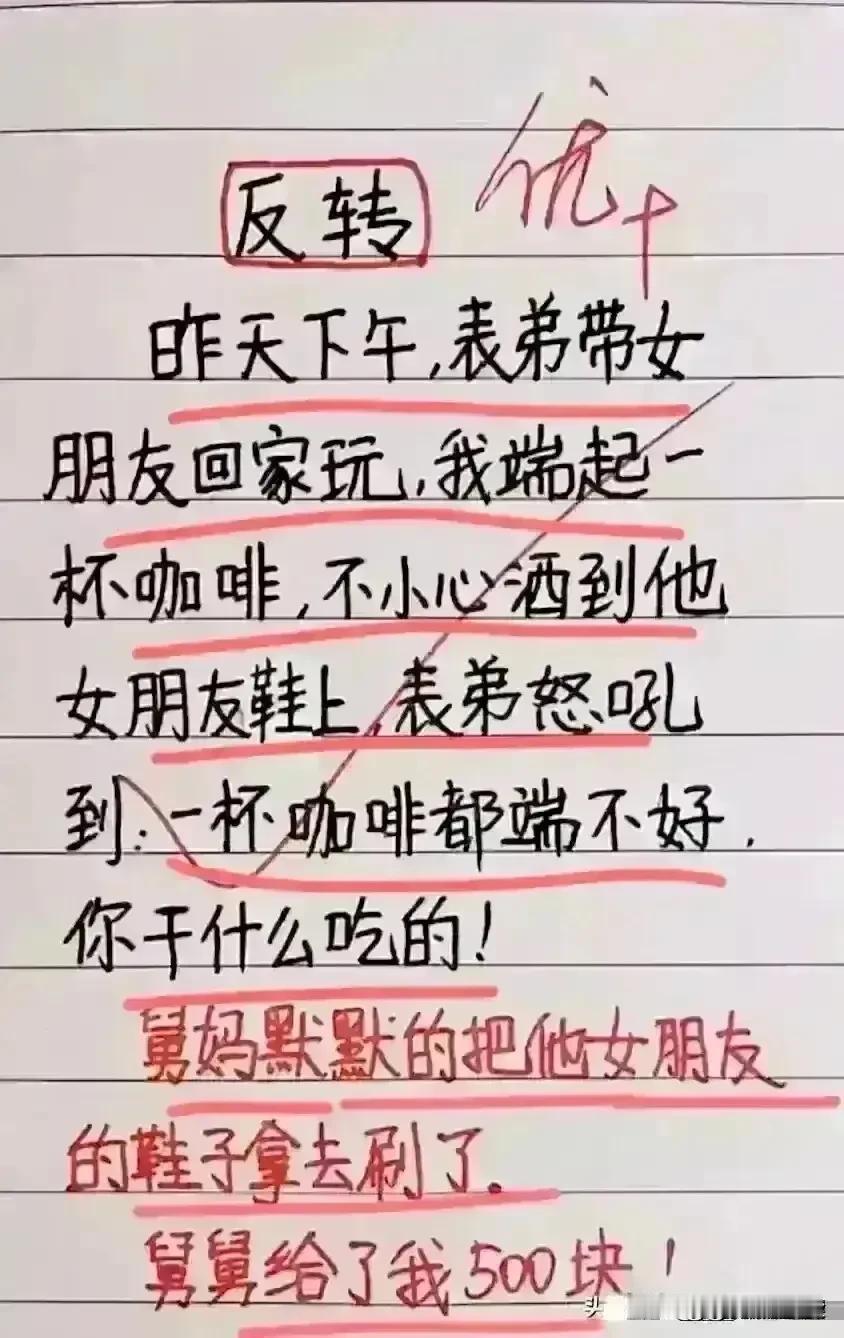 反转
优+
昨天下午,表弟带女
朋友回家玩,我端起一
杯咖啡,不小心洒到他
女朋友鞋上,表弟怒吼
到:一杯咖啡都端不好.
你干什么吃的!
舅妈默默的把他女朋友
的鞋子拿去刷了。
舅舅给了我500块!
头